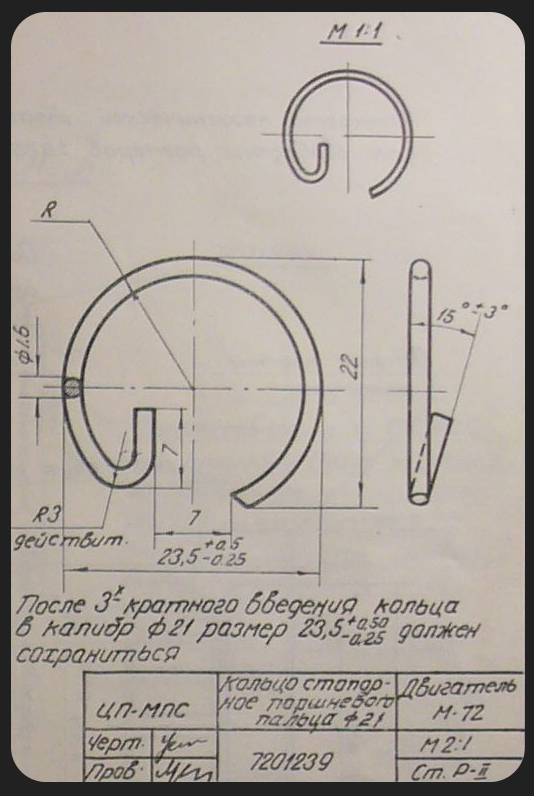 М 1:1
R
ф1.6
22
15°±3°
7
7
R3
действит.
23,5 +0.5 -0.25
После 3х кратного введения кольца
в калибр ф21 размер 23,5 +0,50 -0,25 должен
сохраниться
ЦП-МПС
Кольцо стопор-
ное поршневого
пальца ф21
Двигатель
М-72
Черт.
Пров.
7201239
М 2:1
Ст. Р-II